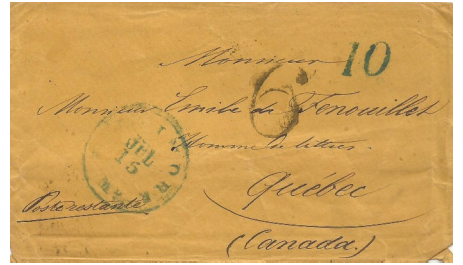 Monsieur 10
6
Monsieur Emile de Fenouillet
Homme de lettres.
JUL
15
Québec
Poste restante
(Canada.)